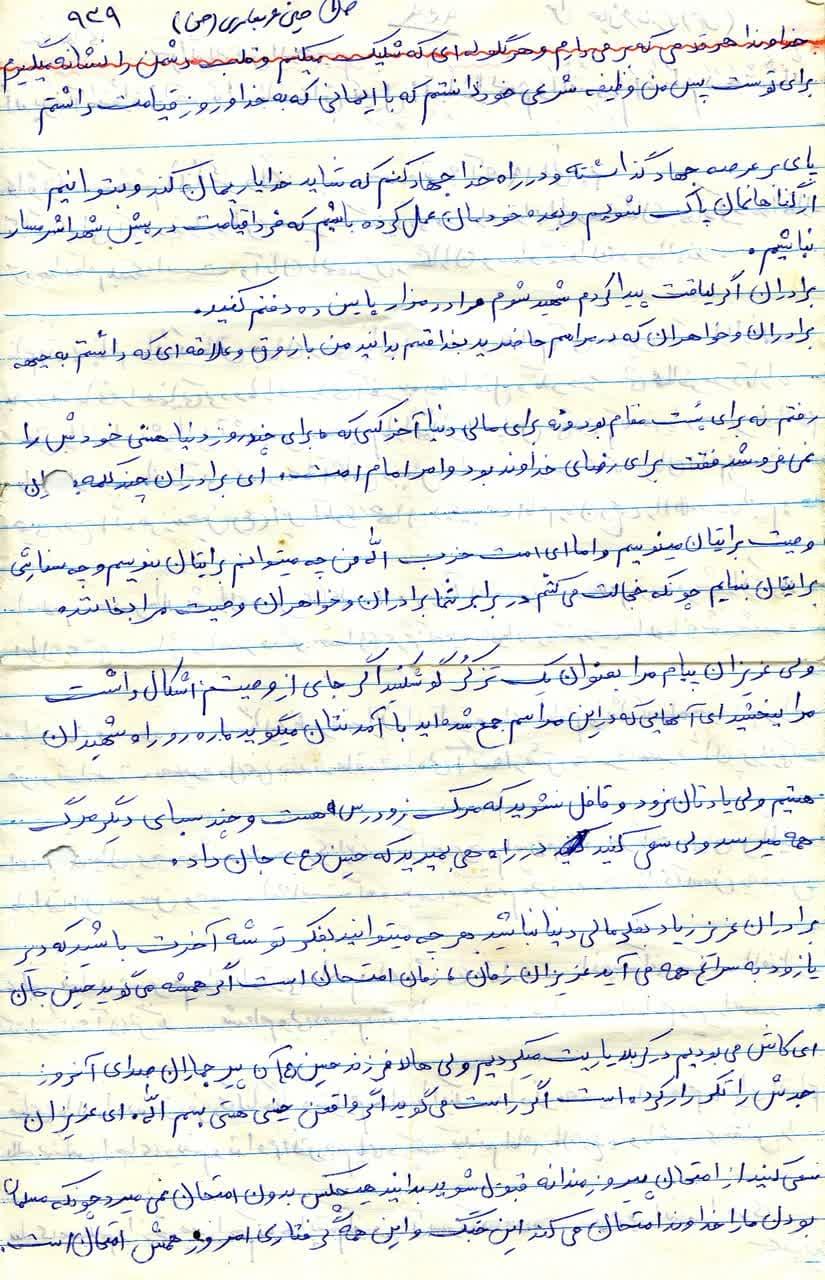 ۹۳۹
خداوندا هر قدمی که بر می دارم و هر گلوله ای که شلیک میکنم و قلب دشمن را نشانه میگیرم
برای توست پس من وظیفه شرعی خود دانستم که با ایمانی که به خدا و روز قیامت داشتم
پای بر عرصه جهاد گذاشته و در راه خدا جهاد کنم که شاید خدا یاریمان کند و بتوانیم
از گناهانمان پاک شویم و بعده خودمان عمل کرده باشیم که فردا قیامت در پیش شهدا شرمسار
نباشیم.
برادران اگر لیاقت پیدا کردم شهید شوم مرا در مزار پایین ده دفنم کنید.
برادران و خواهران که در مراسم حاضرید بخدا قسم بدانید من با ذوق و علاقه ای که داشتم به جبهه
رفتم نه برای پست مقام بود و نه برای مالی دنیا آخر کسی که برای چند روز دنیا هستی خودش را
نمی فروشد فقت برای رضای خداوند بود و امر امام است. ای برادران چند کلمه این
وصیت برایتان مینویسم و اما ای امت حزب الله من چه میتوانم برایتان بنویسم و چه سفارشی
برایتان بنمایم چونکه خجالت می کشم در برابر شما برادران و خواهران وصیت مرا بخوانند.
ولی عزیزان پیام مرا بعنوان یک تزکر گوش کنید اگر جای از وصیتم اشکال داشت
مرا ببخشید ای آنهایی که در این مراسم جمع شده اید با آمدنتان میگوید ما ره رو راه شهیدان
هستیم ولی یادتان نرود و قافل نشوید که مرگ زودرس هست و چند سبای دیگر مرگ
همه میرسد ولی سعی کنید در راهی بمیرید که حسین (ع) جان داد.
برادران عزیز زیاد بفکر مالی دنیا نباشید هر چه میتوانید بفکر توشه آخرت باشید که دیر
یا زود به سراغ همه می آید عزیزان زمان، زمان امتحان است اگر همیشه می گوید حسین جان
ای کاش می بودیم در کربلا یاریت میکردیم ولی حالا فرزند حسین (ع) آن پیر جماران صدای آنروز
جدش را تکرار کرده است اگر راست می گوید اگر واقعن حسینی هستی بسم الله. ای عزیزان
سعی کنید از امتحان پیروزمندانه قبول شوید بدانید هیچکس بدون امتحان نمی میرد چونکه مسلمان
بودن ما را خداوند امتحان می کند این جنگ و این همه گرفتاری امروز همش امتحان است.